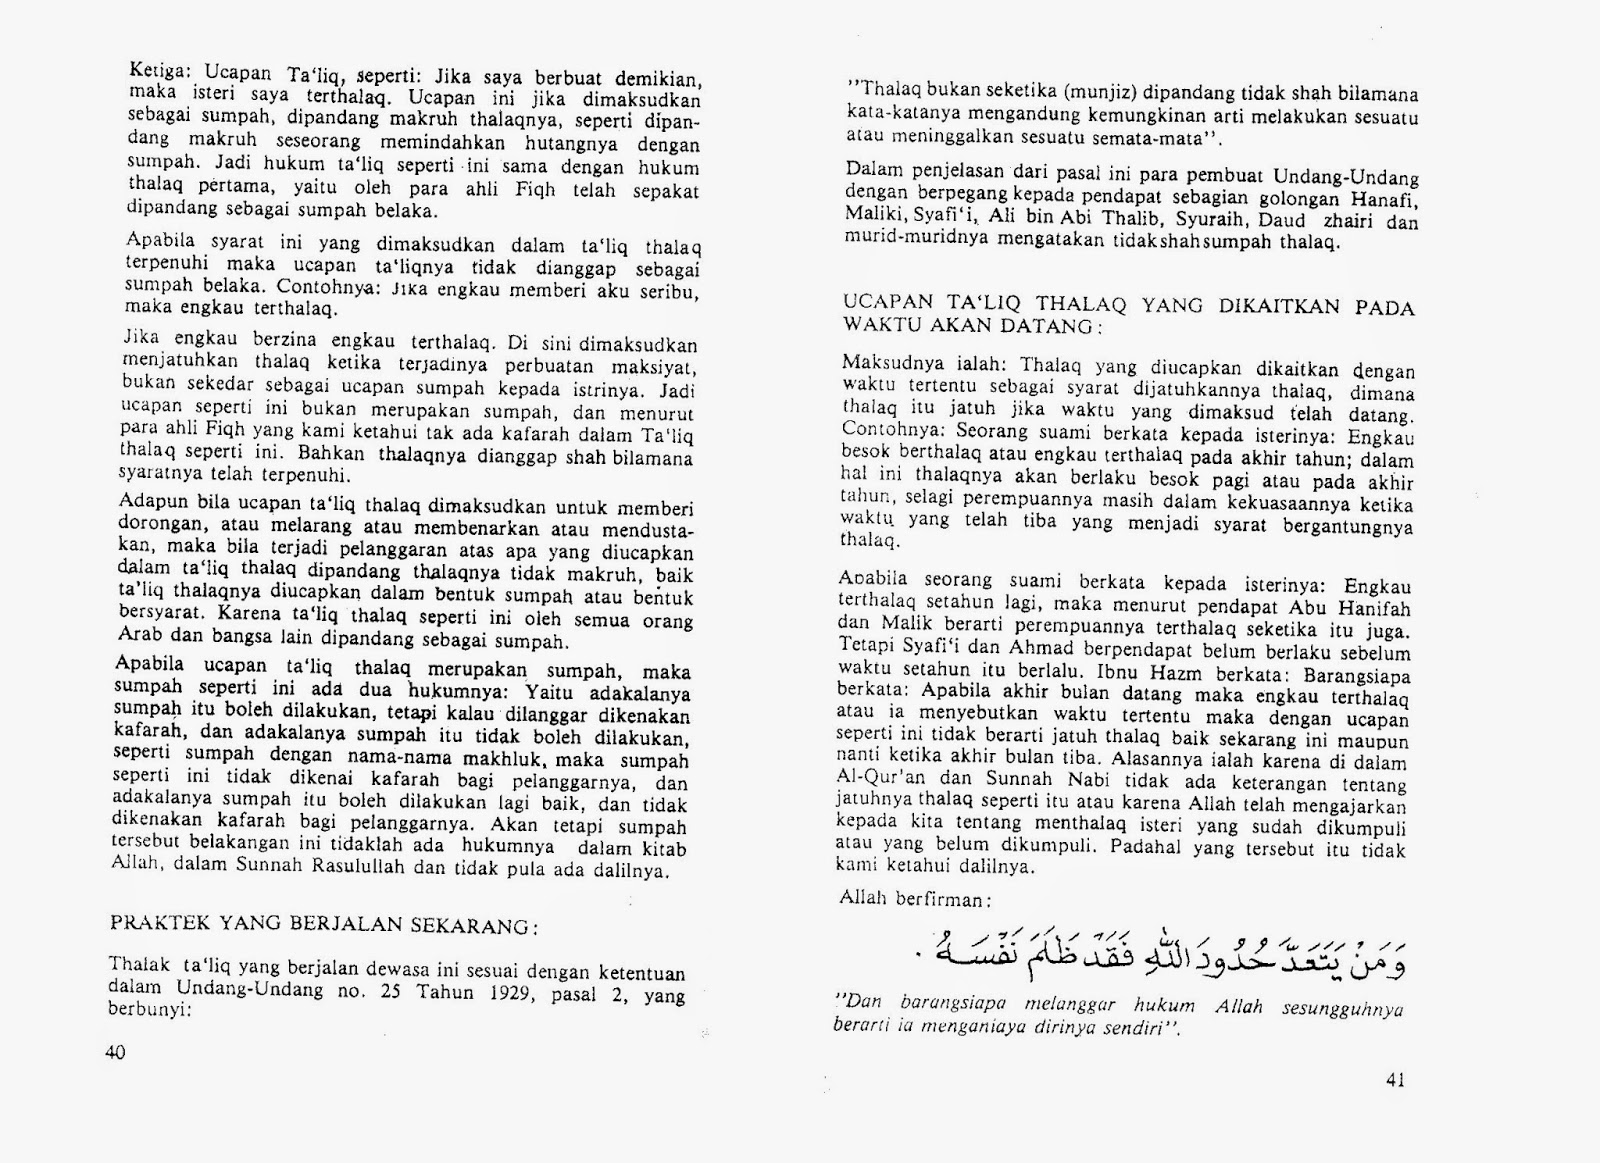 Ketiga: Ucapan Ta‘liq, seperti: Jika saya berbuat demikian,
maka isteri saya terthalaq. Ucapan ini jika dimaksudkan
sebagai sumpah, dipandang makruh thalaqnya, seperti dipan-
dang makruh seseorang memindahkan hutangnya dengan
sumpah. Jadi hukum ta‘liq seperti ini sama dengan hukum
thalaq pertama, yaitu oleh para ahli Fiqh telah sepakat
dipandang sebagai sumpah belaka.
Apabila syarat ini yang dimaksudkan dalam ta‘liq thalaq
terpenuhi maka ucapan ta‘liqnya tidak dianggap sebagai
sumpah belaka. Contohnya: Jika engkau memberi aku seribu,
maka engkau terthalaq.
Jika engkau berzina engkau terthalaq. Di sini dimaksudkan
menjatuhkan thalaq ketika terjadinya perbuatan maksiyat,
bukan sekedar sebagai ucapan sumpah kepada istrinya. Jadi
ucapan seperti ini bukan merupakan sumpah, dan menurut
para ahli Fiqh yang kami ketahui tak ada kafarah dalam Ta‘liq
thalaq seperti ini. Bahkan thalaqnya dianggap shah bilamana
syaratnya telah terpenuhi.
Adapun bila ucapan ta‘liq thalaq dimaksudkan untuk memberi
dorongan, atau melarang atau membenarkan atau mendusta-
kan, maka bila terjadi pelanggaran atas apa yang diucapkan
dalam ta‘liq thalaq dipandang thalaqnya tidak makruh, baik
ta’liq thalaqnya diucapkan dalam bentuk sumpah atau bentuk
bersyarat. Karena ta‘liq thalaq seperti ini oleh semua orang
Arab dan bangsa lain dipandang sebagai sumpah.
Apabila ucapan ta‘liq thalaq merupakan sumpah, maka
sumpah seperti ini ada dua hukumnya: Yaitu adakalanya
sumpah itu boleh dilakukan, tetapi kalau dilanggar dikenakan
kafarah, dan adakalanya sumpah itu tidak boleh dilakukan,
seperti sumpah dengan nama-nama makhluk, maka sumpah
seperti ini tidak dikenai kafarah bagi pelanggarnya, dan
adakalanya sumpah itu boleh dilakukan lagi baik, dan tidak
dikenakan kafarah bagi pelanggarnya. Akan tetapi sumpah
tersebut belakangan ini tidaklah ada hukumnya dalam kitab
Allah, dalam Sunnah Rasulullah dan tidak pula ada dalilnya.
PRAKTEK YANG BERJALAN SEKARANG:
Thalak ta‘liq yang berjalan dewasa ini sesuai dengan ketentuan
dalam Undang-Undang no. 25 Tahun 1929, pasal 2, yang
berbunyi:
40
’’Thalaq bukan seketika (munjiz) dipandang tidak shah bilamana
kata-katanya mengandung kemungkinan arti melakukan sesuatu
atau meninggalkan sesuatu semata-mata’’.
Dalam penjelasan dari pasal ini para pembuat Undang-Undang
dengan berpegang kepada pendapat sebagian golongan Hanafi,
Maliki, Syafi‘i, Ali bin Abi Thalib, Syuraih, Daud zhairi dan
murid-muridnya mengatakan tidak shah sumpah thalaq.
UCAPAN TA‘LIQ THALAQ YANG DIKAITKAN PADA
WAKTU AKAN DATANG:
Maksudnya ialah: Thalaq yang diucapkan dikaitkan dengan
waktu tertentu sebagai syarat dijatuhkannya thalaq, dimana
thalaq itu jatuh jika waktu yang dimaksud telah datang.
Contohnya: Seorang suami berkata kepada isterinya: Engkau
besok berthalaq atau engkau terthalaq pada akhir tahun; dalam
hal ini thalaqnya akan berlaku besok pagi atau pada akhir
tahun, selagi perempuannya masih dalam kekuasaannya ketika
waktu yang telah tiba yang menjadi syarat bergantungnya
thalaq.
Apabila seorang suami berkata kepada isterinya: Engkau
terthalaq setahun lagi, maka menurut pendapat Abu Hanifah
dan Malik berarti perempuannya terthalaq seketika itu juga.
Tetapi Syafi‘i dan Ahmad berpendapat belum berlaku sebelum
waktu setahun itu berlalu. Ibnu Hazm berkata: Barangsiapa
berkata: Apabila akhir bulan datang maka engkau terthalaq
atau ia menyebutkan waktu tertentu maka dengan ucapan
seperti ini tidak berarti jatuh thalaq baik sekarang ini maupun
nanti ketika akhir bulan tiba. Alasannya ialah karena di dalam
Al-Qur'an dan Sunnah Nabi tidak ada keterangan tentang
jatuhnya thalaq seperti itu atau karena Allah telah mengajarkan
kepada kita tentang menthalaq isteri yang sudah dikumpuli
atau yang belum dikumpuli. Padahal yang tersebut itu tidak
kami ketahui dalilnya.
Allah berfirman:
وَمَنْ يَتَعَدَّ حُدُودَ اللهِ فَقَدْ ظَلَمَ نَفْسَهُ .
’’Dan barangsiapa melanggar hukum Allah sesungguhnya
berarti ia menganiaya dirinya sendiri’’.
41